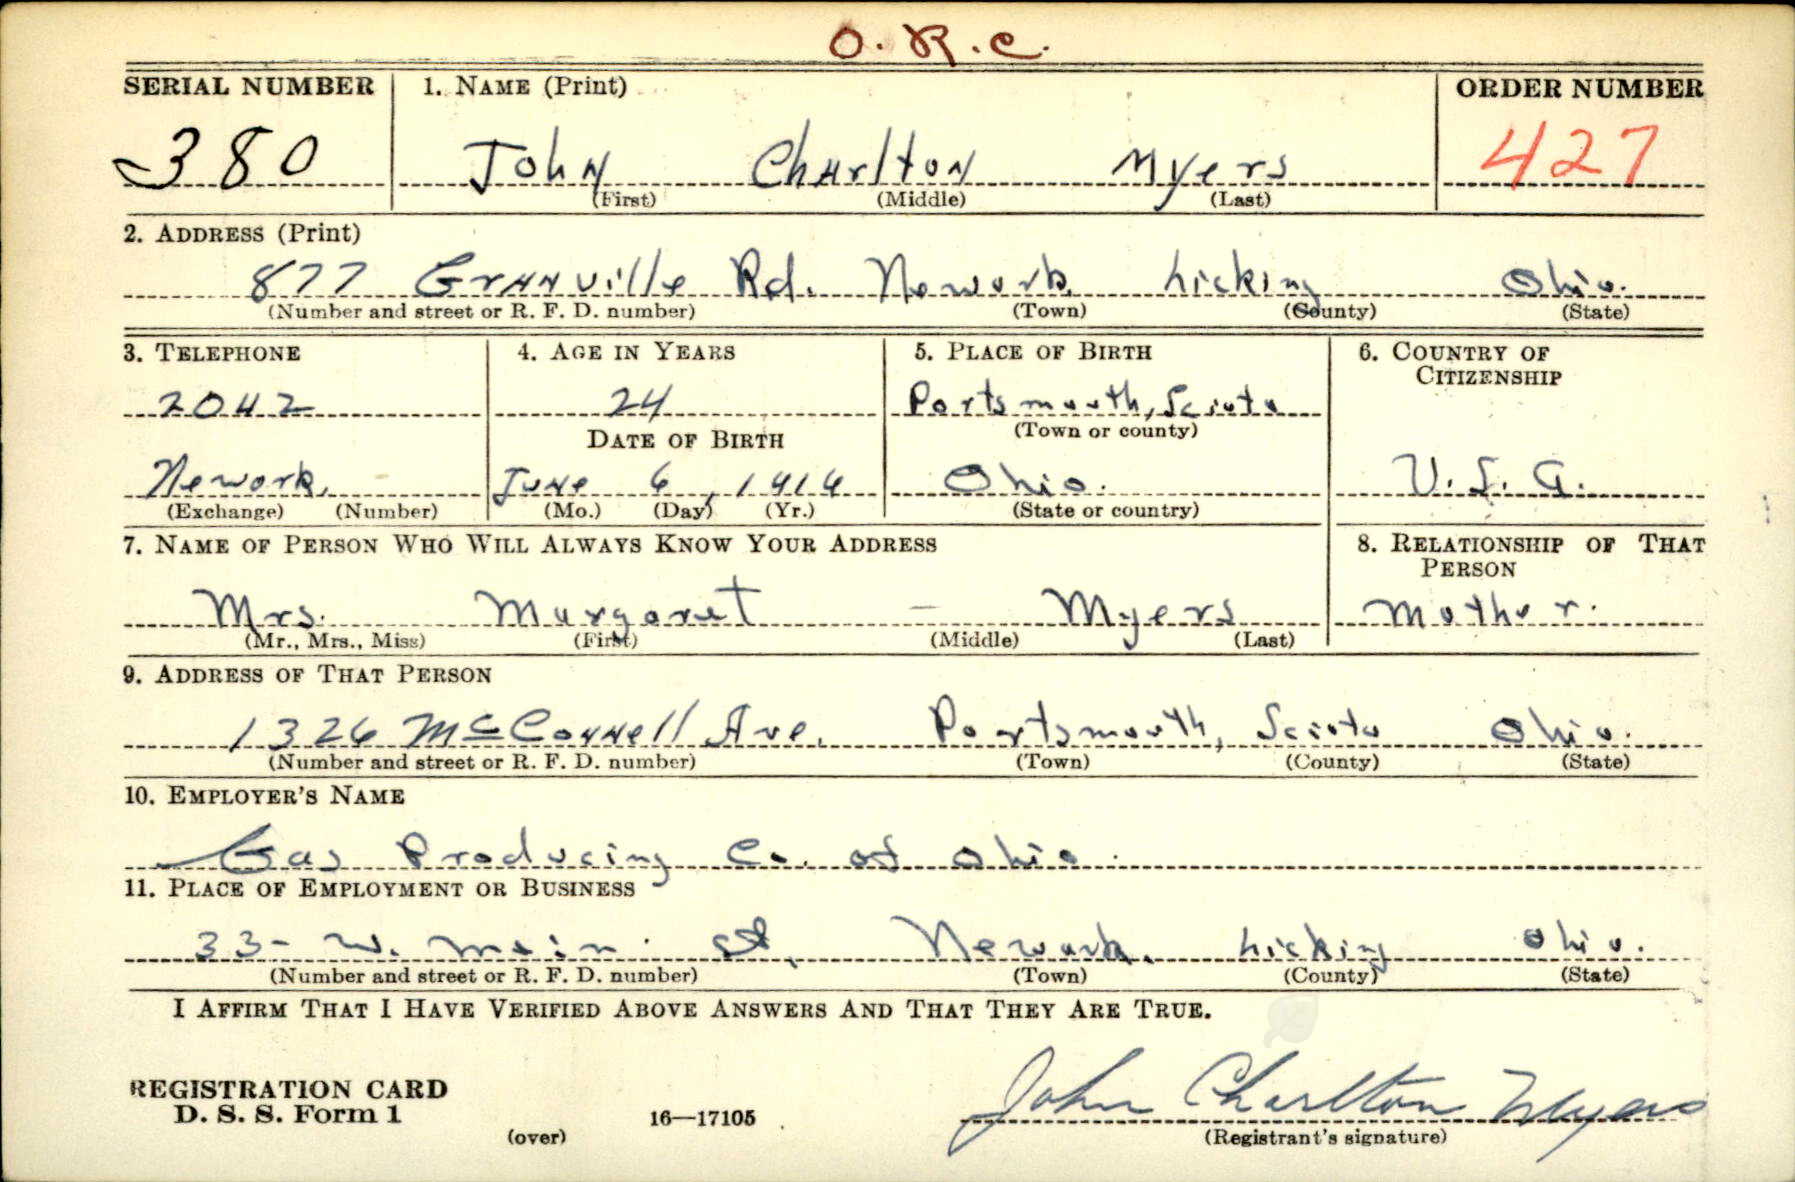 O. R. C.
SERIAL NUMBER 1. NAME (Print) ORDER NUMBER
380 John Charlton Myers 427
(First) (Middle) (Last)
2. ADDRESS (Print)
877 Granville Rd. Newark, Licking Ohio.
(Number and street or R. F. D. number) (Town) (County) (State)
3. TELEPHONE 4. AGE IN YEARS 5. PLACE OF BIRTH 6. COUNTRY OF CITIZENSHIP
2042 24 Portsmouth, Scioto
DATE OF BIRTH (Town or county)
Newark, June 6, 1916 Ohio. U. S. A.
(Exchange) (Number) (Mo.) (Day) (Yr.) (State or country)
7. NAME OF PERSON WHO WILL ALWAYS KNOW YOUR ADDRESS 8. RELATIONSHIP OF THAT PERSON
Mrs. Margaret — Myers Mother.
(Mr., Mrs., Miss) (First) (Middle) (Last)
9. ADDRESS OF THAT PERSON
1326 McConnell Ave. Portsmouth, Scioto Ohio.
(Number and street or R. F. D. number) (Town) (County) (State)
10. EMPLOYER'S NAME
Gas Producing Co. of Ohio.
11. PLACE OF EMPLOYMENT OR BUSINESS
33- W. Main St. Newark, Licking Ohio.
(Number and street or R. F. D. number) (Town) (County) (State)
I AFFIRM THAT I HAVE VERIFIED ABOVE ANSWERS AND THAT THEY ARE TRUE.
REGISTRATION CARD
D. S. S. Form 1 16—17105 John Charlton Myers
(over) (Registrant's signature)